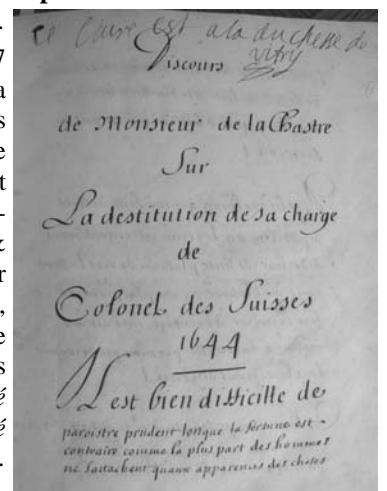 Ce Livre est a la duchesse de
vitry
Discours
de Monsieur de la Chastre
Sur
La destitution de sa charge
de
Colonel des Suisses
1644
Il est bien difficille de
paroistre prudent lorsque la fortune est
contraire comme la plus part des hommes
ne sattachent quaux apparences des choses